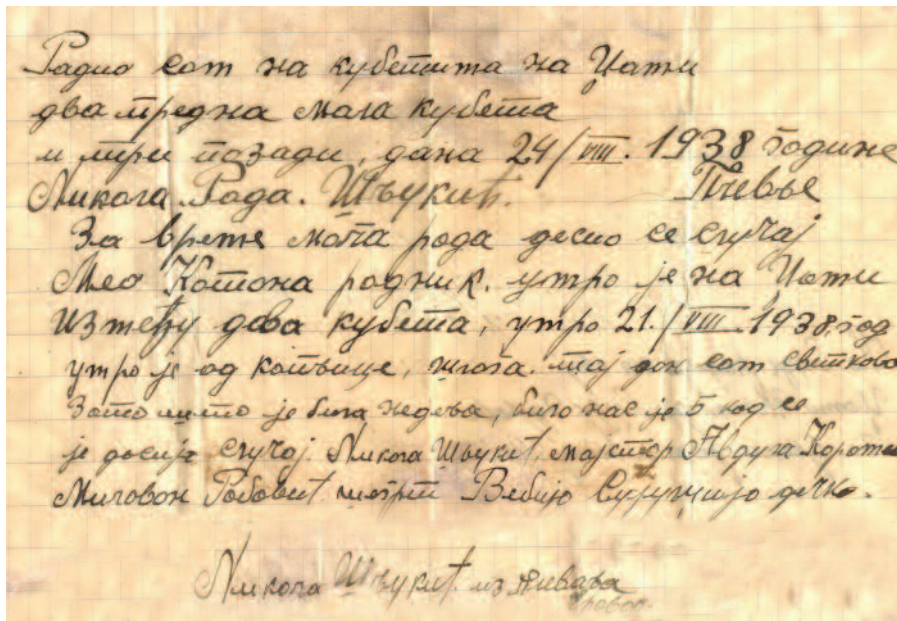 Радио сам на кубетима на Џами
два предна мала кубета
и три позади, дана 24/VIII. 1938 године
Никола Рада. Шљукић. Пљевље
За време мога рада десио се случај
Мео Котона радник. умро је на Џами
између два кубета, умро 21./VIII 1938. год
умро је од капљице, шлога. тај дан сам светковао
Зато што је била недеља, било нас је 5 кад се
је десија случај. Никола Шљукић, мајстор Авдула
Миловон шегрт дечко.
Никола Шљукић из